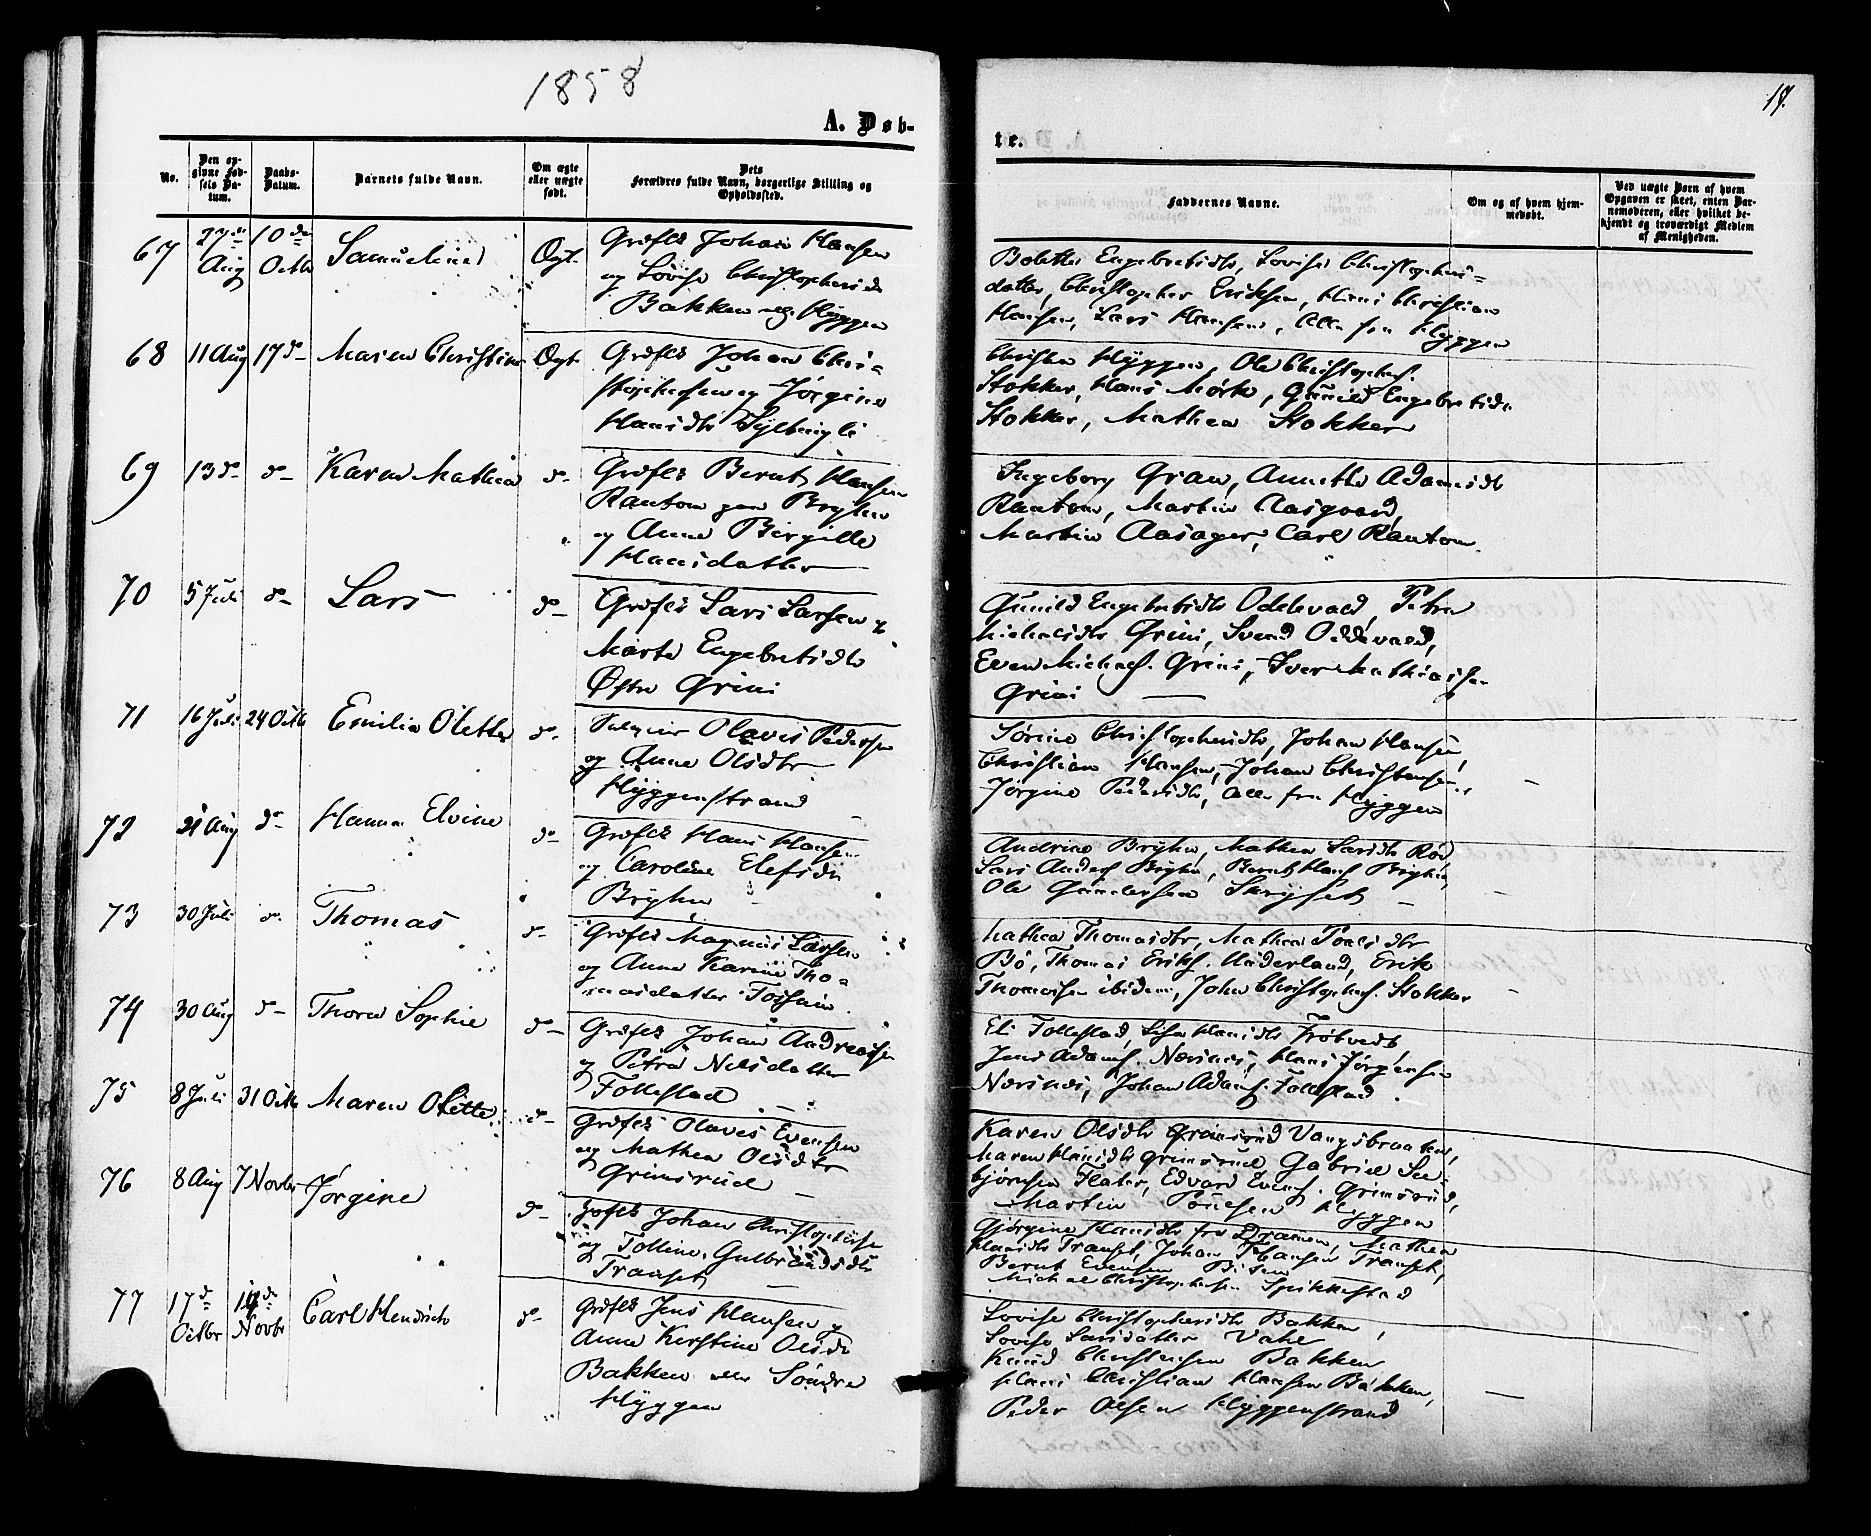 1858
17.
A. Døb-
te.
No.
Den op-
givne Fød-
sels Da-
tum.
Daabs-
Datum.
Barnets fulde Navn.
Om ægte
eller uægte
født.
Dets
Forældres fulde Navn, borgerlige Stilling og
Opholdssted.
Faddernes Navne.
Om og af hvem hjem-
medøbt.
Ved uægte Børn af hvem
Opgaven er skeet, enten Bar-
nemoderen, eller hvilket be-
kjendt og troværdigt Medlem
af Menigheden.
67
27de
Aug
10de
Octbr
Ægt.
Johan Hansen
og Lovise Christophersdtr
Bakken Hyggen
Bolette Engebretsdtr, Lovise Christophers=
datter, Christopher Eriksen, Hans Christian
Hansen, Lars Hansen, Alle fra Hyggen
68
11 Aug
17 do
Maren Christine
Ægt
Johan Chri-
stophersen og Jørgine
Hansdtr
Hyggen, Ole Christophs.
Stokker, Hans Mørk, Gunild Engebretsdr
Stokker, Mathea Stokker
69
13 do
do
Karen Mathea
do
Bernt Hansen
og Anne Birgitte
Hansdatter
Ingeborg Gran, Annette Adamsdtr
Rautom, Martin Aasgaard,
Martin Aasager, Carl Rautom.
70
5 Juli
do
Lars
do
Lars Larsen og
Marte Engebretsdtr
Østre Grini
Gunild Engebretsdtr Oddevald, Petra
Michelsdtr Grini, Svend Oddevald,
Even Michels. Grini, Iver Mathiasen
Grini
71
16 Juli
24 Octb
Emilie Olette
do
Olavus Pedersen
og Anne Olsdtr
Hyggenstrand
Sørine Christophersdtr, Johan Hansen,
Christian Hansen, Johan Christensen,
Jørgine Pedersdtr, Alle fra Hyggen
72
21 Aug
do
Hanna Elvine
do
Hans Hansen
og Caroline Elefsdtr
Bryhn
Andrine Bryhn, Mathea Larsdtr Rød,
Lars Anders Bryhn, Bernt Hans Bryhn,
Ole Gundersen
73
30 Juli
do
Thomas
do
Magnus Larsen
og Anne Karine Tho-
masdatter
Mathea Thomasdtr, Mathea
Bø, Thomas Eriks. Underland, Erik
Thomasen ibidem, John Christophs. Stokker
74
30 Aug
do
Thora Sophie
do
Johan Andreasen
og Petra Nilsdatter
Follestad
Eli Follestad, Hansdtr
Jens Adams. Næsnes, Hans Jørgensen
Næsnes, Johan Adams. Follestad.
75
8 Juli
31 Octb
Maren Olette
do
Olaves Evensen
og Mathea Olsdtr
Grimsrud
Karen Olsdtr Grimsrud Vangsbraaten,
Maren Hansdtr Grimsrud, Gabriel See-
bjørnsen Flater, Edvard Evens. Grimsrud,
Martin Hyggen
76
8 Aug
7 Novbr
Jørgine
do
Johan Christophersen
og Torline Gulbrandsdtr
Transet
Gjørgine Hansdtr fra Drammen, Mathea
Hansdtr Transet, Johan Hansen Transet,
Bernt Evensen
Michael Christophersen Spikkestad
77
17de
Octbr
14de
Novbr
Carl Hendrich
do
Jens Hansen og
Anne Kerstine Olsdr
Bakken Søndre
Hyggen
Lovise Christophersdtr Bakken,
Lovise Larsdatter
Knud Christensen Bakken
Hans Christian Hansen Bakken,
Peder Olsen Hyggenstrand